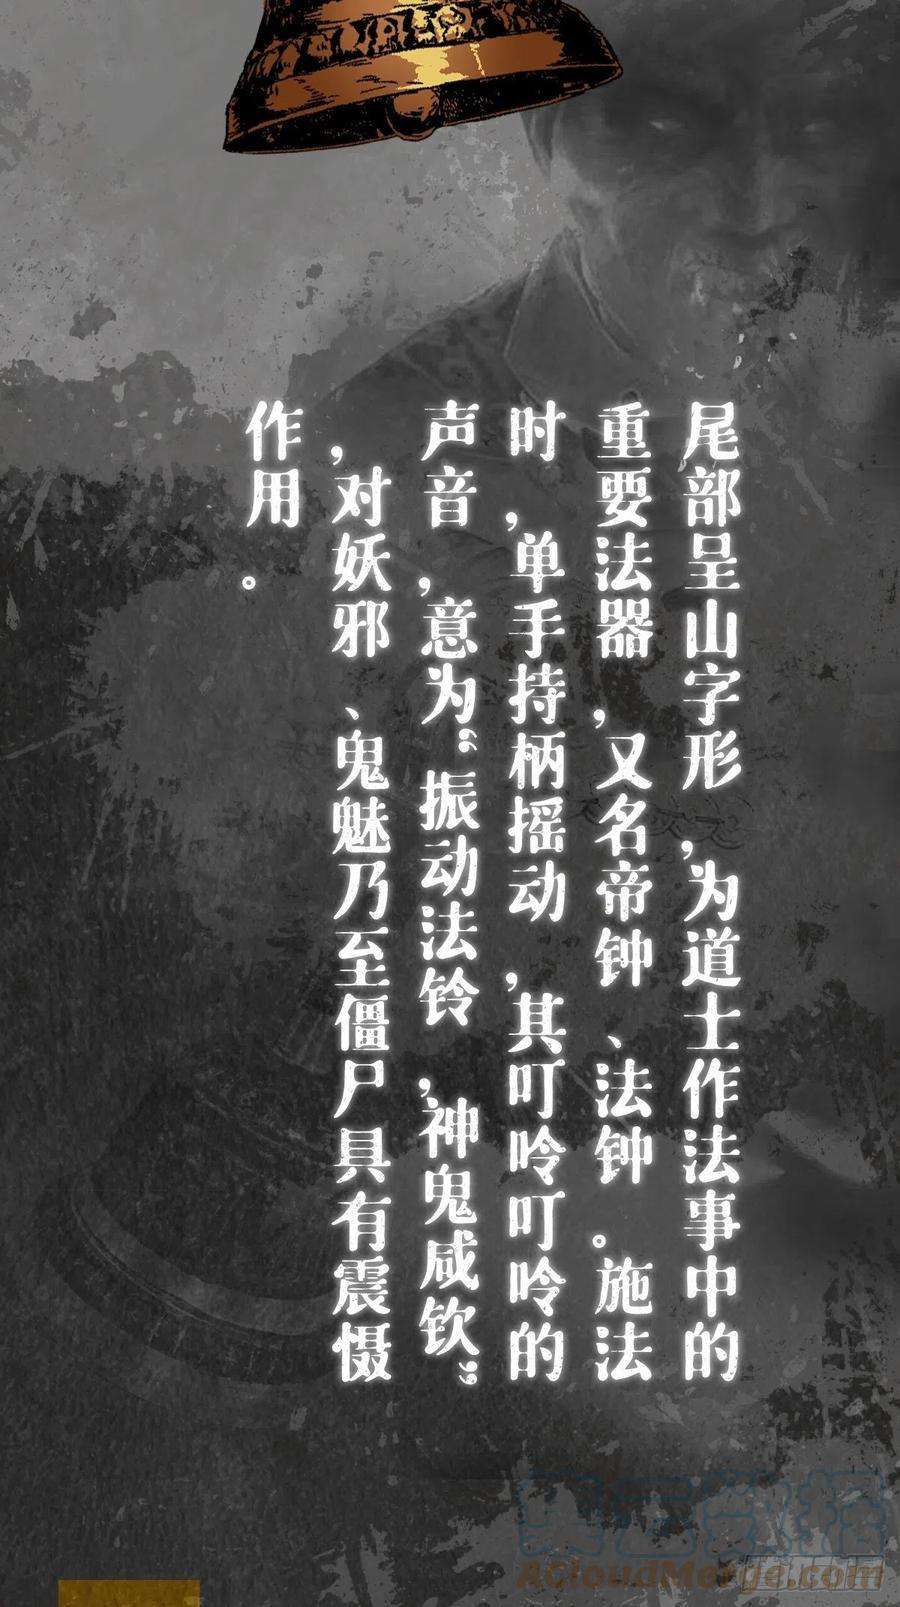 尾部呈山字形，为道士作法事中的
重要法器，又名帝钟、法钟。施法
时，单手持柄摇动，其叮呤叮呤的
声音，意为“振动法铃，神鬼咸钦”
，对妖邪、鬼魅乃至僵尸具有震慑
作用。
ACloudMerge.com